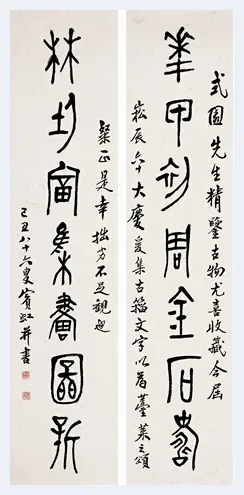 式園先生精鑒古物尤喜收藏今屆
華甲初周金石壽
崧辰六十大慶爰集古籀文字以為臺萊之頌
粲正是幸拙劣不足觀也
林 富集畫圖新
己丑八十六叟賓虹并書